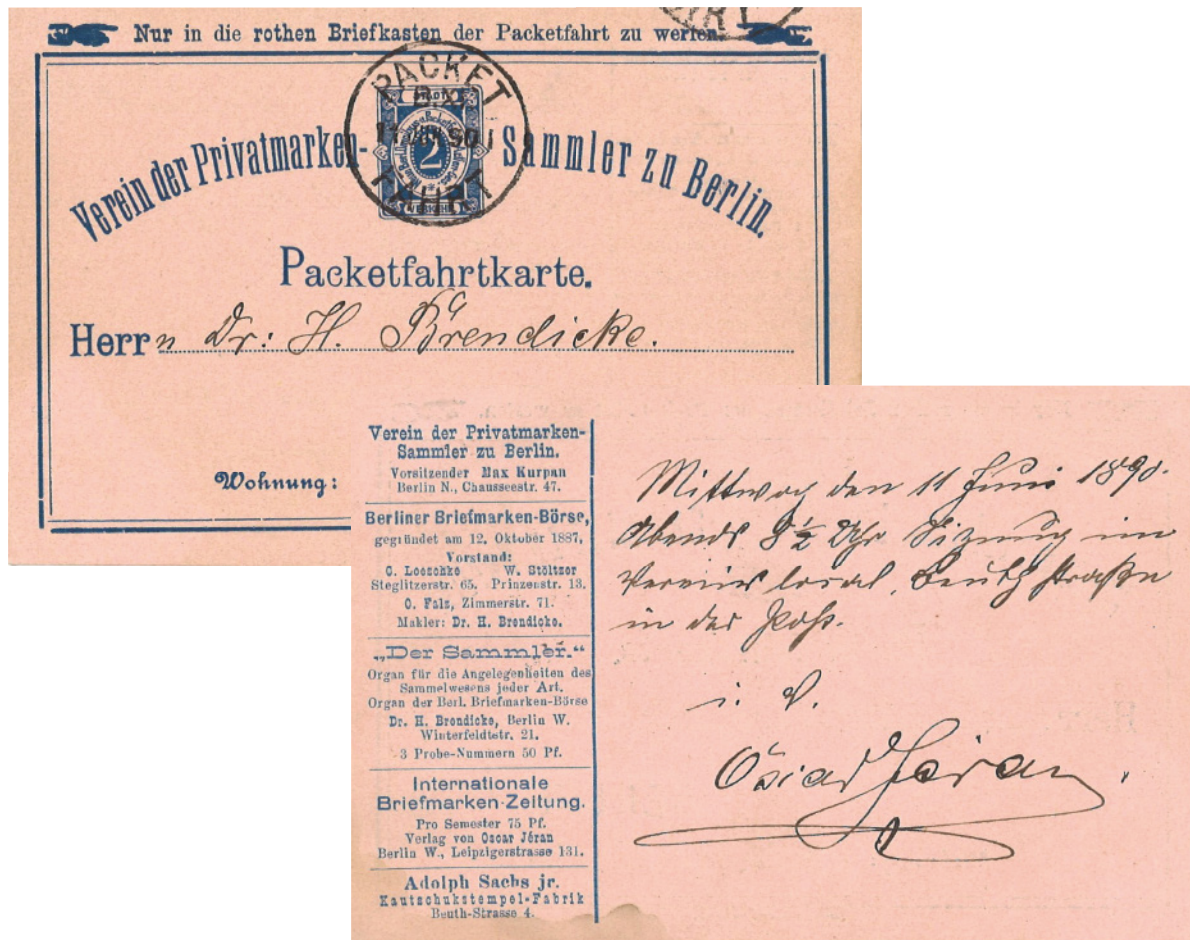 Nur in die rothen Briefkasten der Packetfahrt zu werfen.
PACKET
FAHRT
2
Verein der Privatmarken-Sammler zu Berlin.
Packetfahrtkarte.
Herrn Dr: H. Brendicke.
Wohnung:
Verein der Privatmarken-
Sammler zu Berlin.
Vorsitzender Max Kurpan
Berlin N., Chausseestr. 47.
Berliner Briefmarken-Börse,
gegründet am 12. Oktober 1887,
Vorstand:
C. Loeschke W. Stöltzer
Steglitzerstr. 65. Prinzenstr. 13.
O. Falz, Zimmerstr. 71.
Makler: Dr. H. Brendicke.
„Der Sammler.“
Organ für die Angelegenheiten des
Sammelwesens jeder Art.
Organ der Berl. Briefmarken-Börse
Dr. H. Brendicke, Berlin W.
Winterfeldtstr. 21.
3 Probe-Nummern 50 Pf.
Internationale
Briefmarken-Zeitung.
Pro Semester 75 Pf.
Verlag von Oscar Jéran
Berlin W., Leipzigerstrasse 131.
Adolph Sachs jr.
Kautschukstempel-Fabrik
Beuth-Strasse 4.
Mittwoch den 11 Juni 1890.
Abends 8½ Uhr Sitzung im
Vereinslocal, Beuthstraße
in der Post.
i. V.
Oscar Jéran.